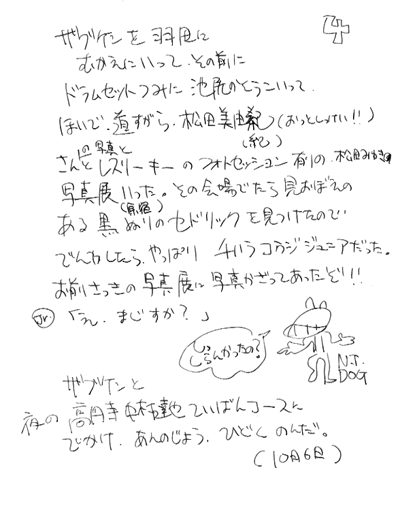 4
ザブケンを羽田に
むかえにいって、その前に
ドラムセットつみに 池尻かどうこいって
ほいで、道すがら、松田美由紀(おっとしっけい!!)
(紀)
の写真と
さんとレスリーキーのフォトセッション有りの、松田みゆき
写真展いった。その会場でたら見おぼえの
(原宿)
ある黒ぬりのセドリックを見つけたので
でんわしたら、やっぱり チバラコウジジュニアだった。
お前さっきの写真展に写真かざってあったぞ!!
Jr 「え、まじすか?」
しらんかったの?
N.J.
DOG
ザブケンと
夜の 高円寺中村達也ていばんコースに
でかけ、あんのじょう、ひどくのんだ。
(10月6日)